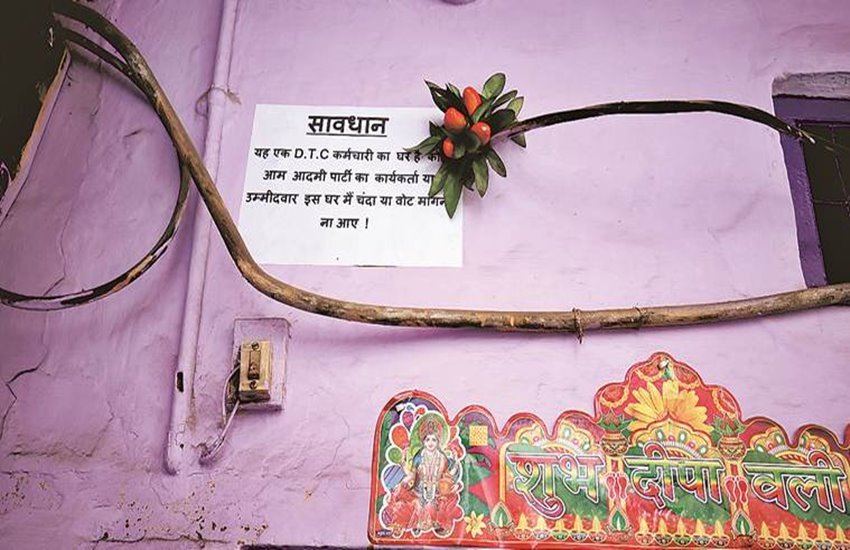 सावधान
यह एक D.T.C कर्मचारी का घर है
आम आदमी पार्टी का कार्यकर्ता या
उम्मीदवार इस घर मैं चंदा या वोट मांगने
ना आए !
शुभ दीपावली